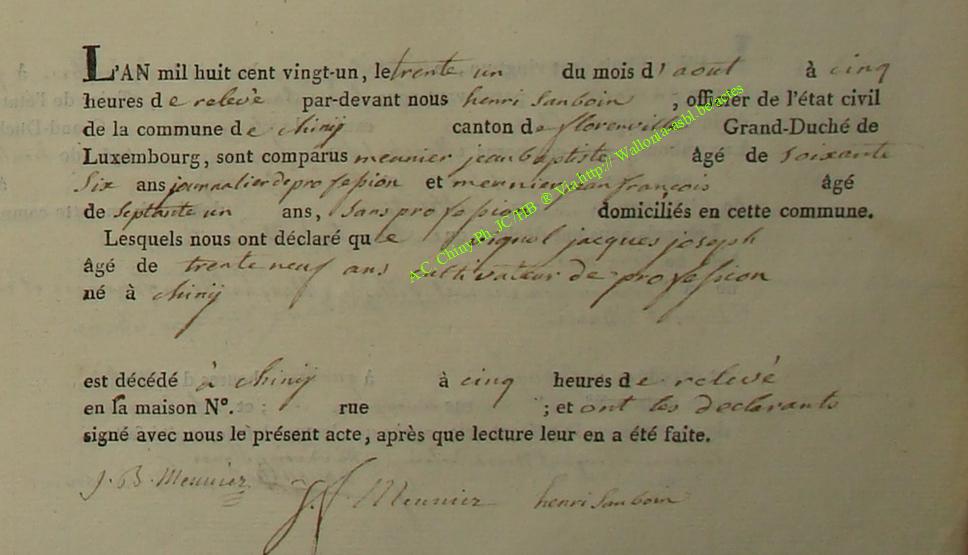 L'AN mil huit cent vingt-un, le trente un du mois d'aout à cinq
heures de relevé par-devant nous henri Sauboin, officier de l'état civil
de la commune de chinÿ canton de florenville Grand-Duché de
Luxembourg, sont comparus meunier jean baptiste âgé de Soixante
Six ans journalier de profession et meunier jean françois âgé
de septante un ans, sans profession domiciliés en cette commune.
Lesquels nous ont déclaré que jacques joseph
âgé de trente neuf ans cultivateur de profession
né à chinÿ
est décédé à chinÿ à cinq heures de relevé
en la maison N°. rue ; et ont les declarants
signé avec nous le présent acte, après que lecture leur en a été faite.
J. B. Meunier J. f Meunier henri Sauboin
A.C. Chiny Ph JC/HB ® Via http:// Wallonia-asbl.be/actes